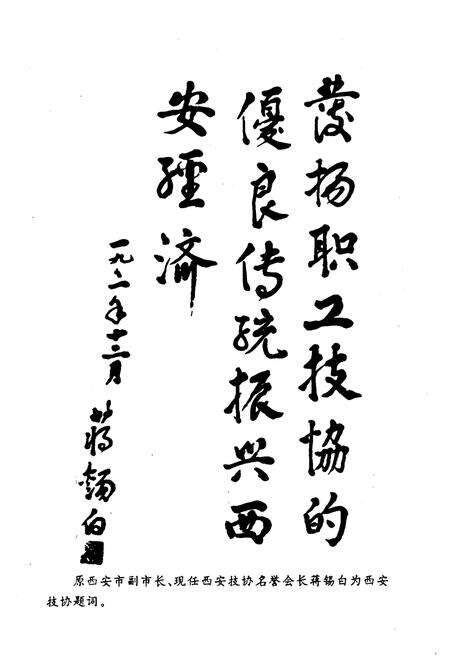 發扬职工技協的
優良传统振兴西
安經济
年十二月
蒋锡白
原西安市副市长、现任西安技协名誉会长蒋锡白为西安
技协题词。